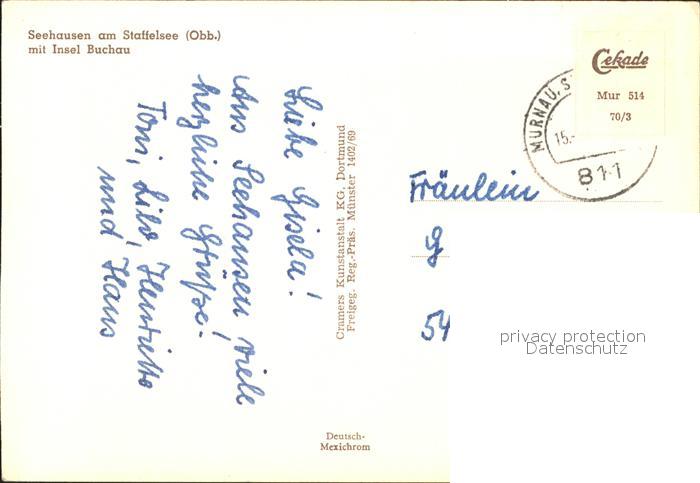 Seehausen am Staffelsee (Obb.)
mit Insel Buchau
Liebe Gisela!
Aus Seehausen viele
herzliche Grüße.
Toni, Lilo, Henriette
und Hans
Cramers Kunstanstalt KG, Dortmund
Freigeg. Reg.-Präs. Münster 1402/69
Deutsch-
Mexichrom
Cekade
Mur 514
70/3
MURNAU, S
15.-
811
Fräulein
G
54
privacy protection
Datenschutz